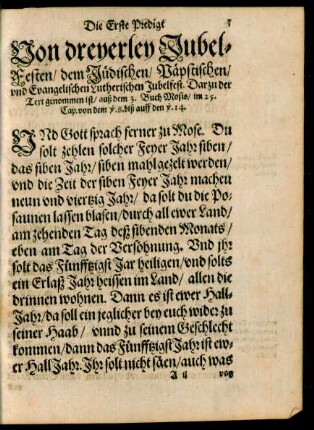 Die Erste Predigt 5
Von dreyerley Jubel-
Festen/ dem Jüdischen/ Päpstischen/
vnd Evangelischen Lutherischen Jubelfest. Darzu der
Text genommen ist/ auß dem 3. Buch Mosis/ im 25.
Cap. von dem ℣. 8. biß auff den ℣. 14.
VNd Gott sprach ferner zu Mose. Du
solt zehlen solcher Feyer Jahr siben/
das siben Jahr/ siben mahl gezelt werden/
vnd die Zeit der siben Feyer Jahr machen
neun vnd viertzig Jahr/ da solt du die Po-
saunen lassen blasen/ durch all ewer Land/
am zehenden Tag deß sibenden Monats/
eben am Tag der Versöhnung. Vnd jhr
solt das Fünfftzigst Jar heiligen/ vnd solts
ein Erlaß Jahr heissen im Land/ allen die
drinnen wohnen. Dann es ist ewer Hall-
Jahr/ da soll ein jeglicher bey euch wider zu
seiner Haab/ vnnd zu seinem Geschlecht
kommen/ dann das Fünfftzigst Jahr ist ew-
er Hall Jahr. Jhr solt nicht säen/ auch was
A ij von